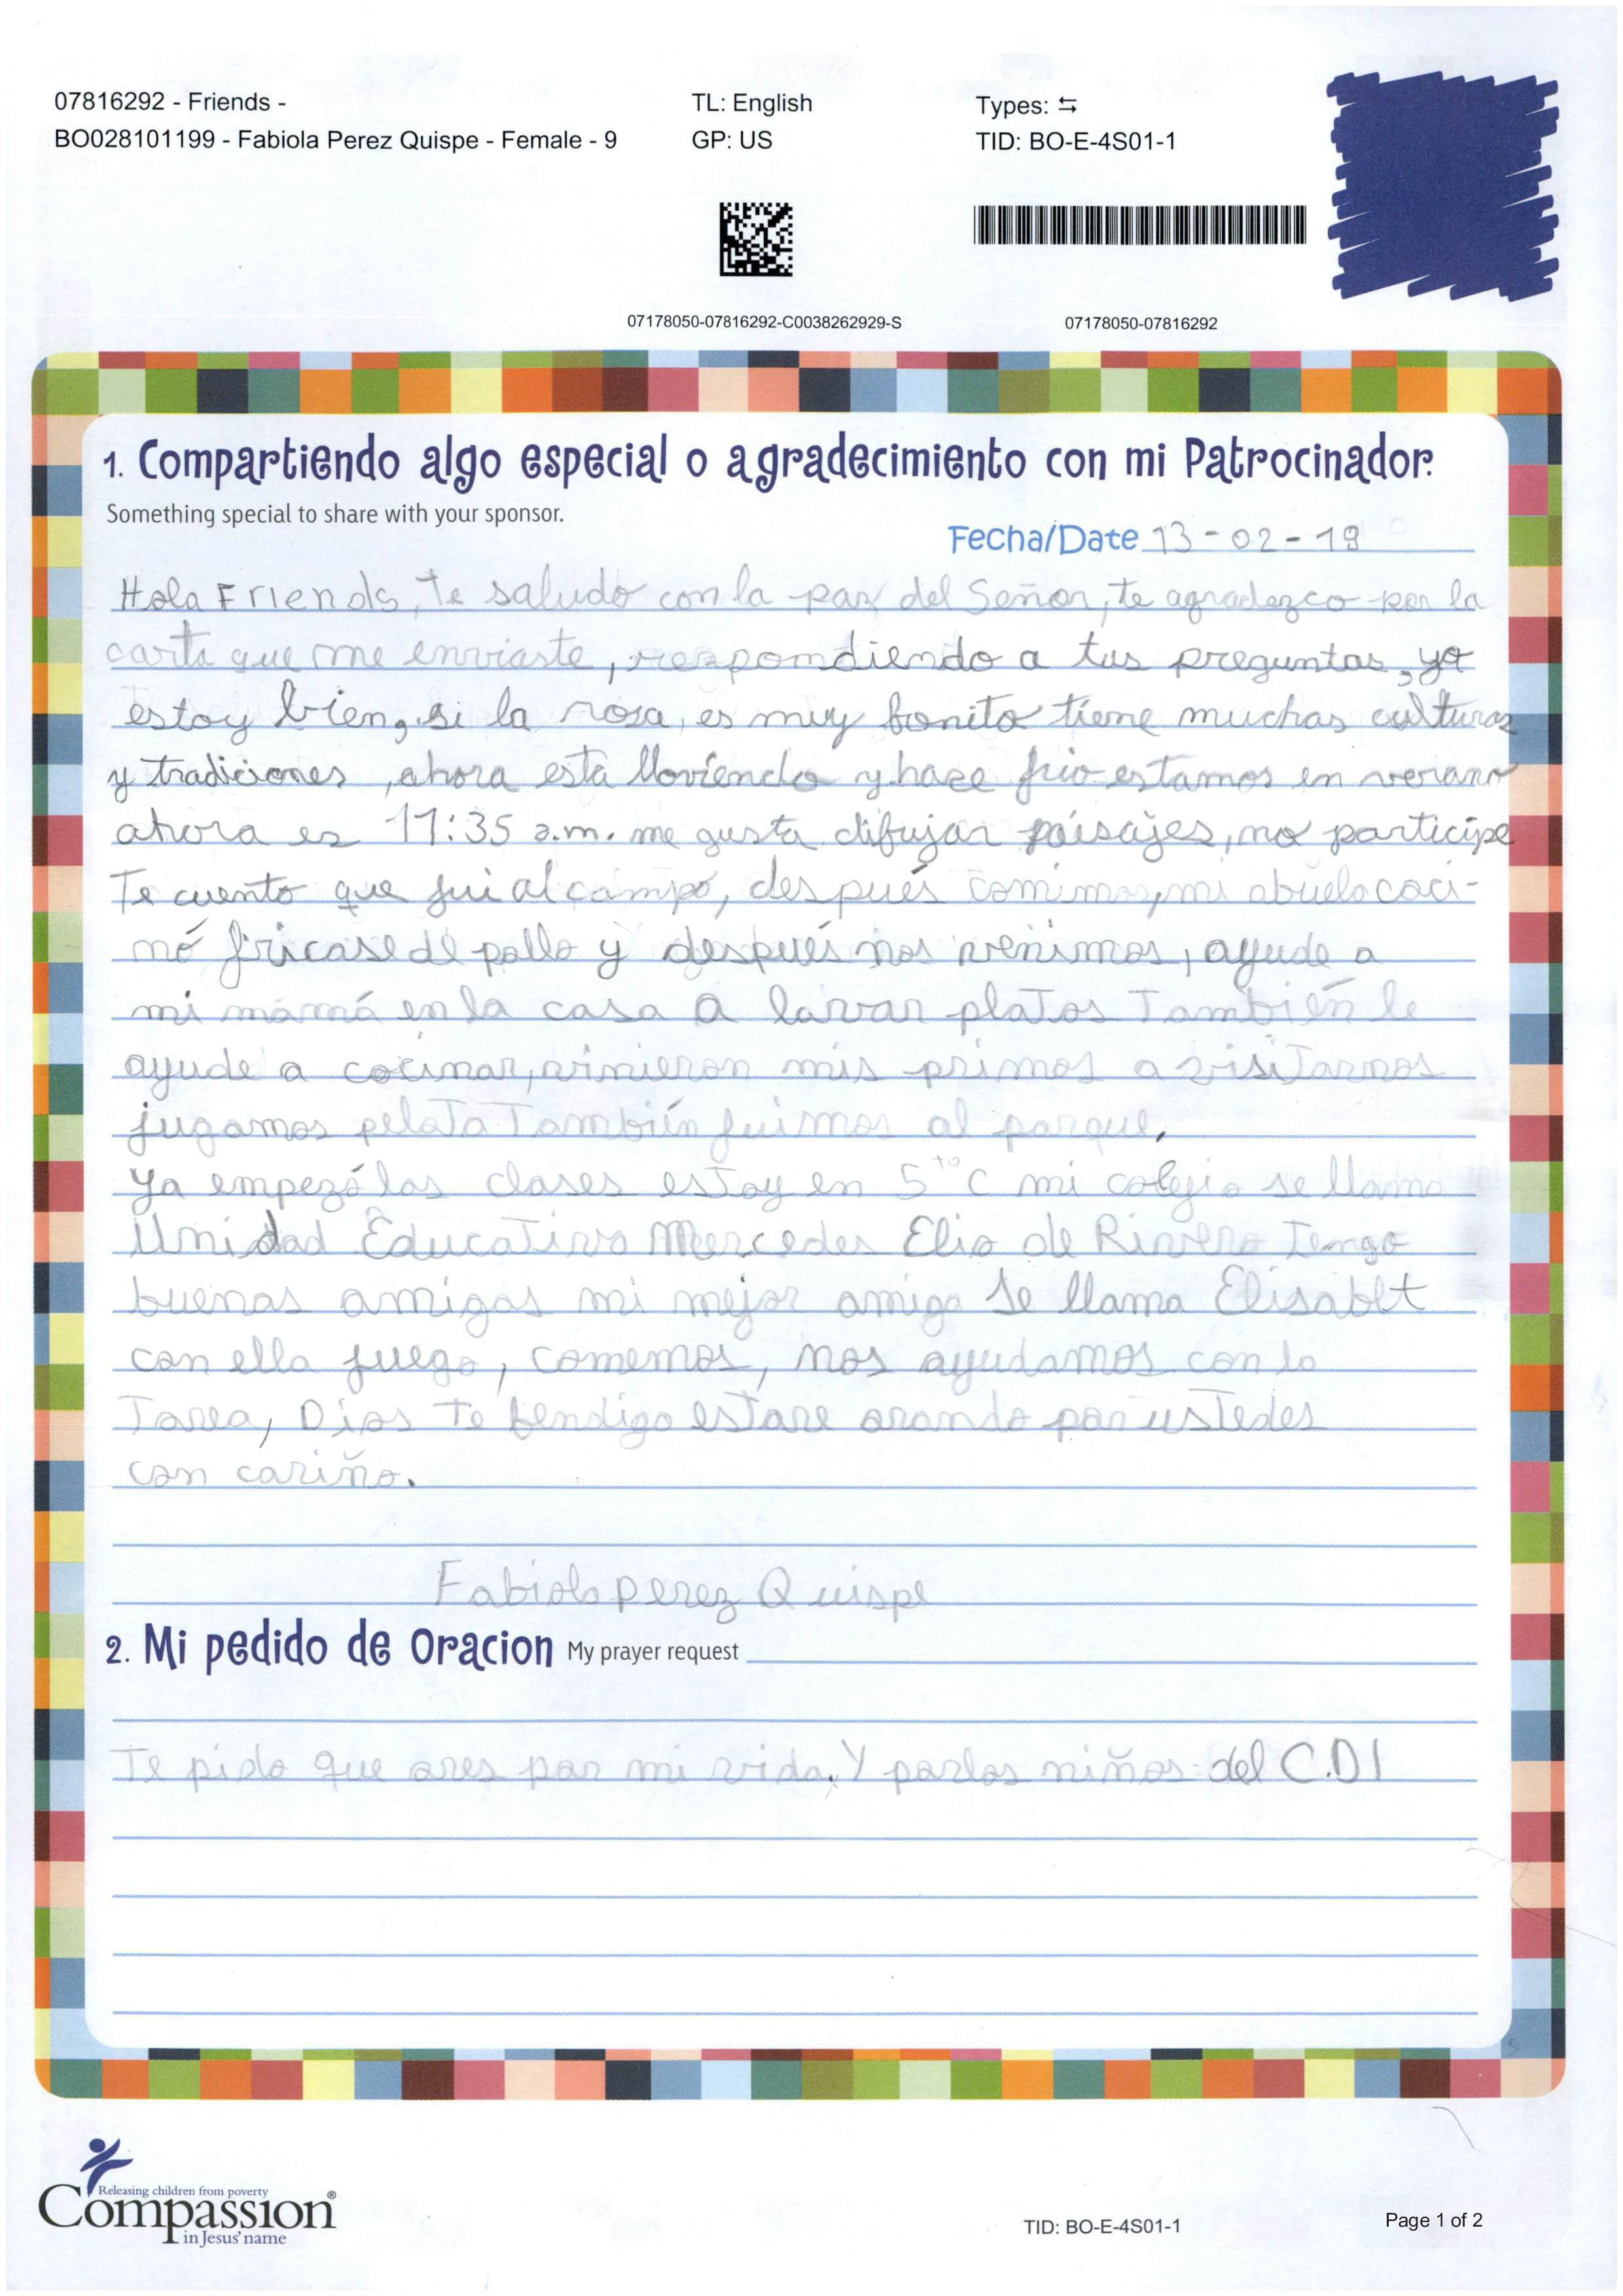 07816292 - Friends -
BO028101199 - Fabiola Perez Quispe - Female - 9
TL: English
GP: US
Types: ⇆
TID: BO-E-4S01-1
07178050-07816292-C0038262929-S
07178050-07816292
1. Compartiendo algo especial o agradecimiento con mi Patrocinador.
Something special to share with your sponsor.
Fecha/Date 13-02-19
Hola Friends, te saludo con la paz del Señor, te agradezco por la
carta que me enviaste, respondiendo a tus preguntas, yo
estoy bien, si la rosa, es muy bonito tiene muchas culturas
y tradiciones, ahora está lloviendo y hace frio estamos en verano
ahora es 11:35 a.m. me gusta dibujar paisajes, no participe
Te cuento que fui al campo, después comimos, mi abuela coci-
nó fricase de pollo y después nos venimos, ayude a
mi mamá en la casa a lavar platos También le
ayude a cocinar, vinieron mis primos a visitarnos
jugamos pelota También fuimos al parque.
Ya empezó las clases estoy en 5to C mi colegio se llama
Unidad Educativa Mercedes Elio de Rivero Tengo
buenas amigas mi mejor amiga se llama Elisabet
con ella juego, comemos, nos ayudamos con la
Tarea, Dios te bendiga estare orando por ustedes
con cariño.
Fabiola Perez Quispe
2. Mi pedido de Oracion My prayer request
Te pido que ores por mi vida. Y por los niños del C.D.I
Releasing children from poverty
Compassion®
in Jesus' name
TID: BO-E-4S01-1
Page 1 of 2